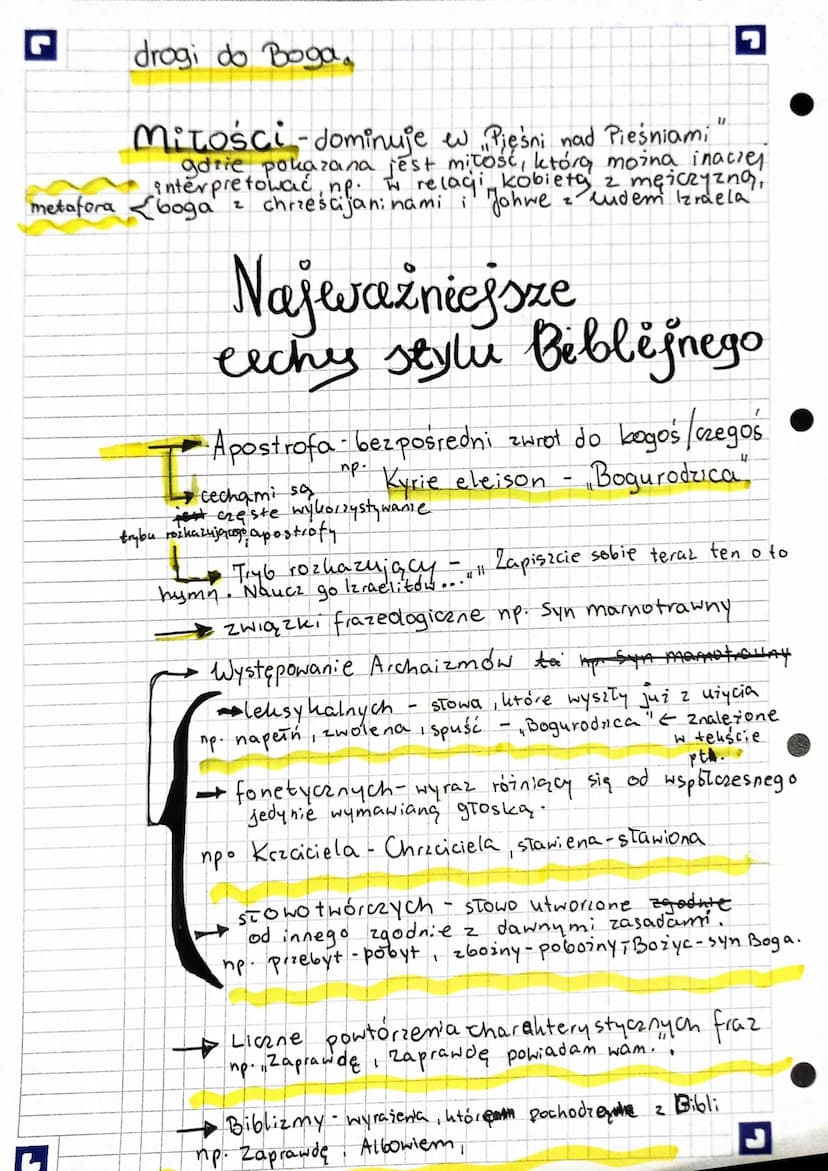 drogi do Boga.
Miłości - dominuje w „Pieśni nad Pieśniami"
gdzie pokazana jest miłość, którą można inaczej
interpretować, np. w relacji kobieta z mężczyzną,
metafora { boga z chrześcijaninami i Jahwe z ludem Izraela
Najważniejsze
cechy stylu Biblijnego
→ Apostrofa - bezpośredni zwrot do kogoś/czegoś
np. Kyrie eleison - „Bogurodzica"
→ cechami są
częste wykorzystywanie
trybu rozkazującego, apostrofy
→ Tryb rozkazujący - „Zapiszcie sobie teraz ten o to
hymn. Naucz go Izraelitów..."
→ związki frazeologiczne np. Syn marnotrawny
→ Występowanie Archaizmów ta np. Syn marnotrawny
→ leksykalnych - słowa, które wyszły już z użycia
np. napełń, zwolena, spuść - „Bogurodzica" ← znalezione
w tekście
pt.
→ fonetycznych - wyraz różniący się od wspólczesnego
jedynie wymawianą głoską.
np. Krzciciela - Chrzciciela, sławiena - sławiona
→ słowotwórczych - słowo utworzone zgodnie
od innego zgodnie z dawnymi zasadami.
np. przebyt - pobyt, zbożny - pobożny, Bożyc - syn Boga.
→ Liczne powtórzenia charakterystycznych fraz
np. „Zaprawdę, zaprawdę powiadam wam.",
→ Biblizmy - wyrażenia, które pochodzą z Bibli
np. Zaprawdę, Albowiem,